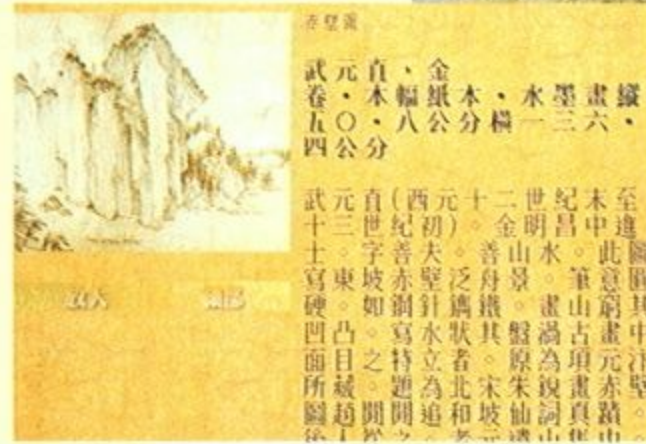 赤壁圖
武元直、金
卷・本幅紙本・水墨畫縱
五○・八公分橫一三六・
四公分
武元直(西元十二世紀末至
十三世紀初)。金明昌中進
士。字善夫。善山水。此圖
寫東坡赤壁泛舟景。筆意圓
硬。如鋼針鐫鐵。畫山窮其
凹凸。寫水狀其盤渦古畫中
面目。之特立者。原為項元汴
所藏。題為北宋朱銳畫赤壁
圖趙閒閒追和坡仙詞真蹟。
放大